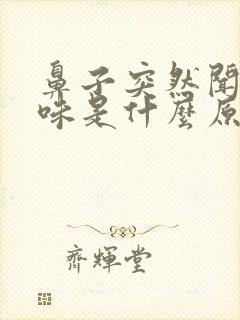 鼻子突然聞
味是什麼原
齊輝堂